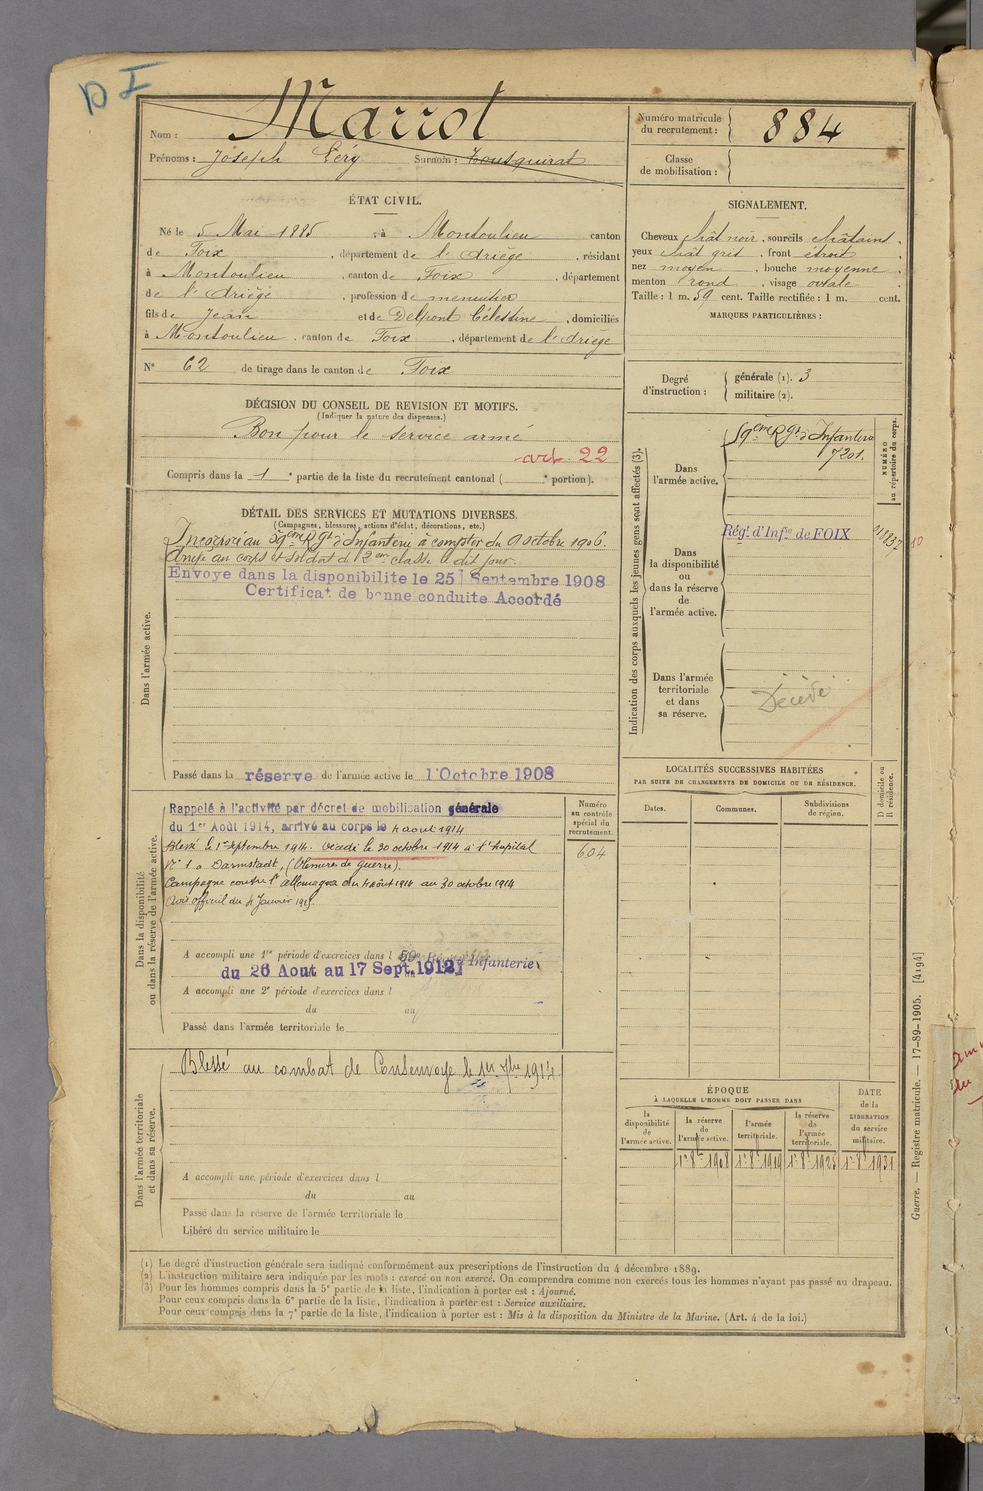 D I
Nom : Marrot
Prénoms : Joseph Léry Surnom : Tousquirat
Numéro matricule du recrutement : 884
Classe de mobilisation :
ÉTAT CIVIL.
Né le 5 Mai 1885, à Montoulieu canton
de Foix, département de l'Ariège, résidant
à Montoulieu, canton de Foix, département
de l'Ariège, profession de menuisier
fils de Jean et de Delpont Célestine, domiciliés
à Montoulieu, canton de Foix, département de l'Ariège
N° 62 de tirage dans le canton de Foix
SIGNALEMENT.
Cheveux chât noir, sourcils châtains,
yeux chât gris, front étroit,
nez moyen, bouche moyenne,
menton rond, visage ovale.
Taille : 1 m. 59 cent. Taille rectifiée : 1 m. cent.
MARQUES PARTICULIÈRES :
Degré d'instruction : générale (1). 3
militaire (2).
DÉCISION DU CONSEIL DE REVISION ET MOTIFS.
(Indiquer la nature des dispenses.)
Bon pour le service armé
art. 22
Compris dans la 1e partie de la liste du recrutement cantonal ( e portion).
DÉTAIL DES SERVICES ET MUTATIONS DIVERSES.
(Campagnes, blessures, actions d'éclat, décorations, etc.)
Dans l'armée active.
Incorporé au 59eme Rgt d'Infanterie à compter du 9 octobre 1906.
Arrivé au corps et soldat de 2eme classe le dit jour.
Envoye dans la disponibilite le 25 Septembre 1908
Certificat de bonne conduite Accordé
Passé dans la réserve de l'armée active le 1 Octobre 1908
Indication des corps auxquels les jeunes gens sont affectés (3).
Dans l'armée active.
59eme Rgt d'Infanterie
7201.
NUMÉRO au répertoire du corps.
Dans la disponibilité ou dans la réserve de l'armée active.
Régt d'Infie de FOIX
Dans l'armée territoriale et dans sa réserve.
Décédé
Dans la disponibilité ou dans la réserve de l'armée active.
Rappelé à l'activité par décret de mobilisation générale
du 1er Août 1914, arrivé au corps le 4 aout 1914
Blessé le 1er septembre 1914. Décédé le 30 octobre 1914 à l'hopital
N° 1 à Darmstadt, (Blessures de Guerre).
Campagne contre l'Allemagne du 4 août 1914 au 30 octobre 1914
Avis officiel du 4 Janvier 1915.
Numéro au contrôle spécial du recrutement.
604
A accompli une 1re période d'exercices dans l 59e Régt d'Infanterie
du 26 Aout au 17 Sept. 1912
A accompli une 2e période d'exercices dans l
du au
Passé dans l'armée territoriale le
Dans l'armée territoriale et dans sa réserve.
Blessé au combat de Consenvoye le 1er 7bre 1914
A accompli une période d'exercices dans l
du au
Passé dans la réserve de l'armée territoriale le
Libéré du service militaire le
LOCALITÉS SUCCESSIVES HABITÉES
PAR SUITE DE CHANGEMENTS DE DOMICILE OU DE RÉSIDENCE.
Dates. Communes. Subdivisions de région. D domicile ou R résidence.
ÉPOQUE
À LAQUELLE L'HOMME DOIT PASSER DANS
la disponibilité de l'armée active.
la réserve de l'armée active.
l'armée territoriale.
la réserve de l'armée territoriale.
DATE de la LIBÉRATION du service militaire.
1er 8bre 1908 1er 8bre 1919 1er 8bre 1925 1er 8bre 1931
(1) Le degré d'instruction générale sera indiqué conformément aux prescriptions de l'instruction du 4 décembre 1889.
(2) L'instruction militaire sera indiquée par les mots : exercé ou non exercé. On comprendra comme non exercés tous les hommes n'ayant pas passé au drapeau.
(3) Pour les hommes compris dans la 5e partie de la liste, l'indication à porter est : Ajourné.
Pour ceux compris dans la 6e partie de la liste, l'indication à porter est : Service auxiliaire.
Pour ceux compris dans la 7e partie de la liste, l'indication à porter est : Mis à la disposition du Ministre de la Marine. (Art. 4 de la loi.)
Guerre. — Registre matricule. — 17-89-1905. [4194]